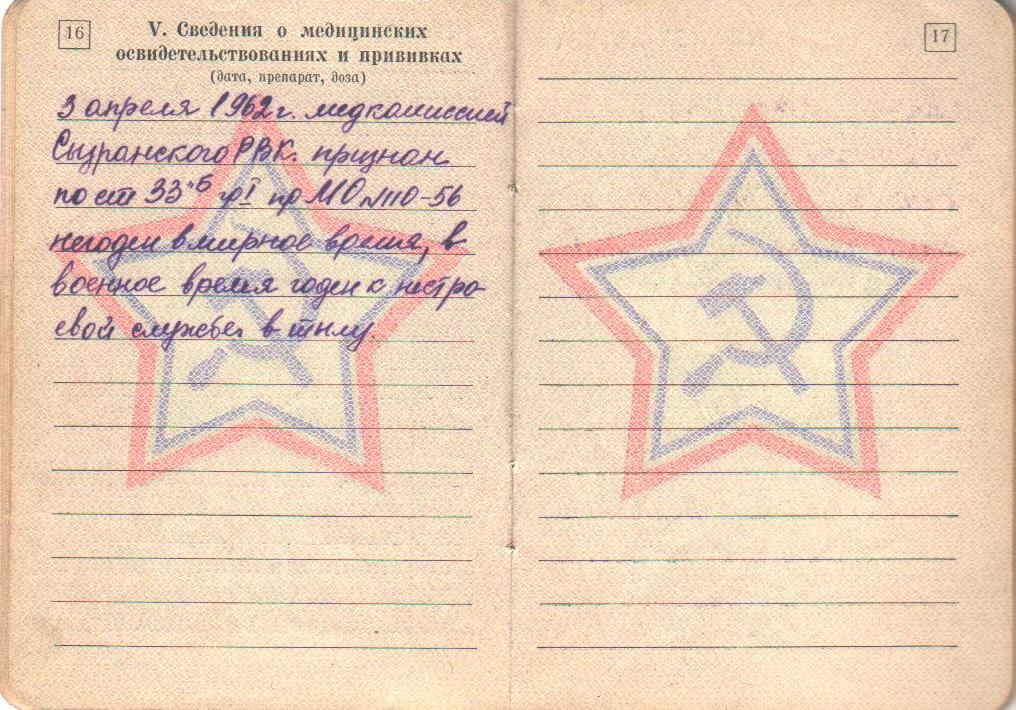 16
V. Сведения о медицинских
освидетельствованиях и прививках
(дата, препарат, доза)
3 апреля 1962 г. медкомиссией
Сызранского РВК. признан
по ст 33"б гр I пр МО №110-56
негоден в мирное время, в
военное время годен к нестро-
евой службе, в тылу.
17